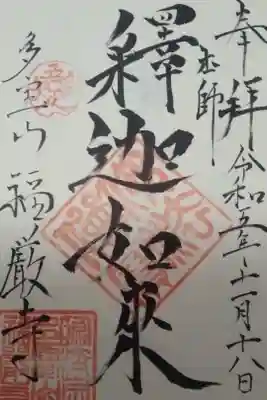 奉拝 令和五年十一月十八日
本師
釋迦如來
多宝山 福厳寺